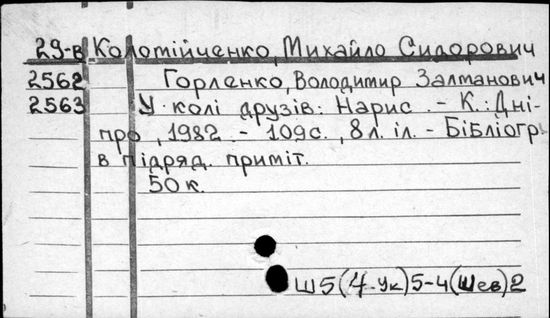 29-в Коломійченко, Михайло Сидорович
2562 Горленко, Володимир Залманович
2563 У колі друзів: Нарис. - К.: Дні-
про, 1982. - 109с., 8 л. іл. - Бібліогр.
в підряд. приміт.
50 к.
Ш5(4-Ук)5-4(Шев)2